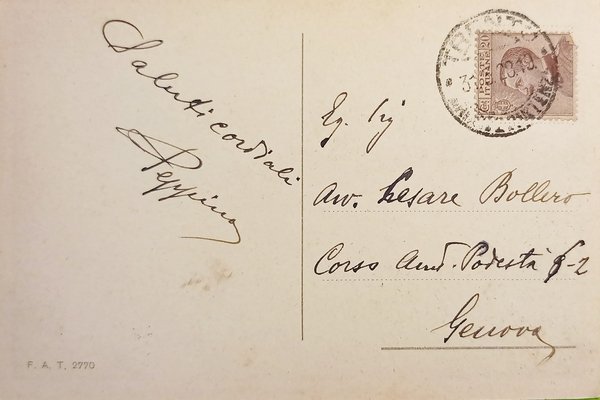 Saluti cordiali
Peppino
POSTE ITALIANE
C. 20
Eg. Sig
Avv. Cesare Bollero
Corso And. Podestà 6-2
Genova
F. A. T. 2770